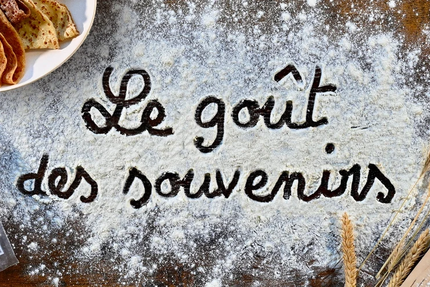 Le goût
des souvenirs